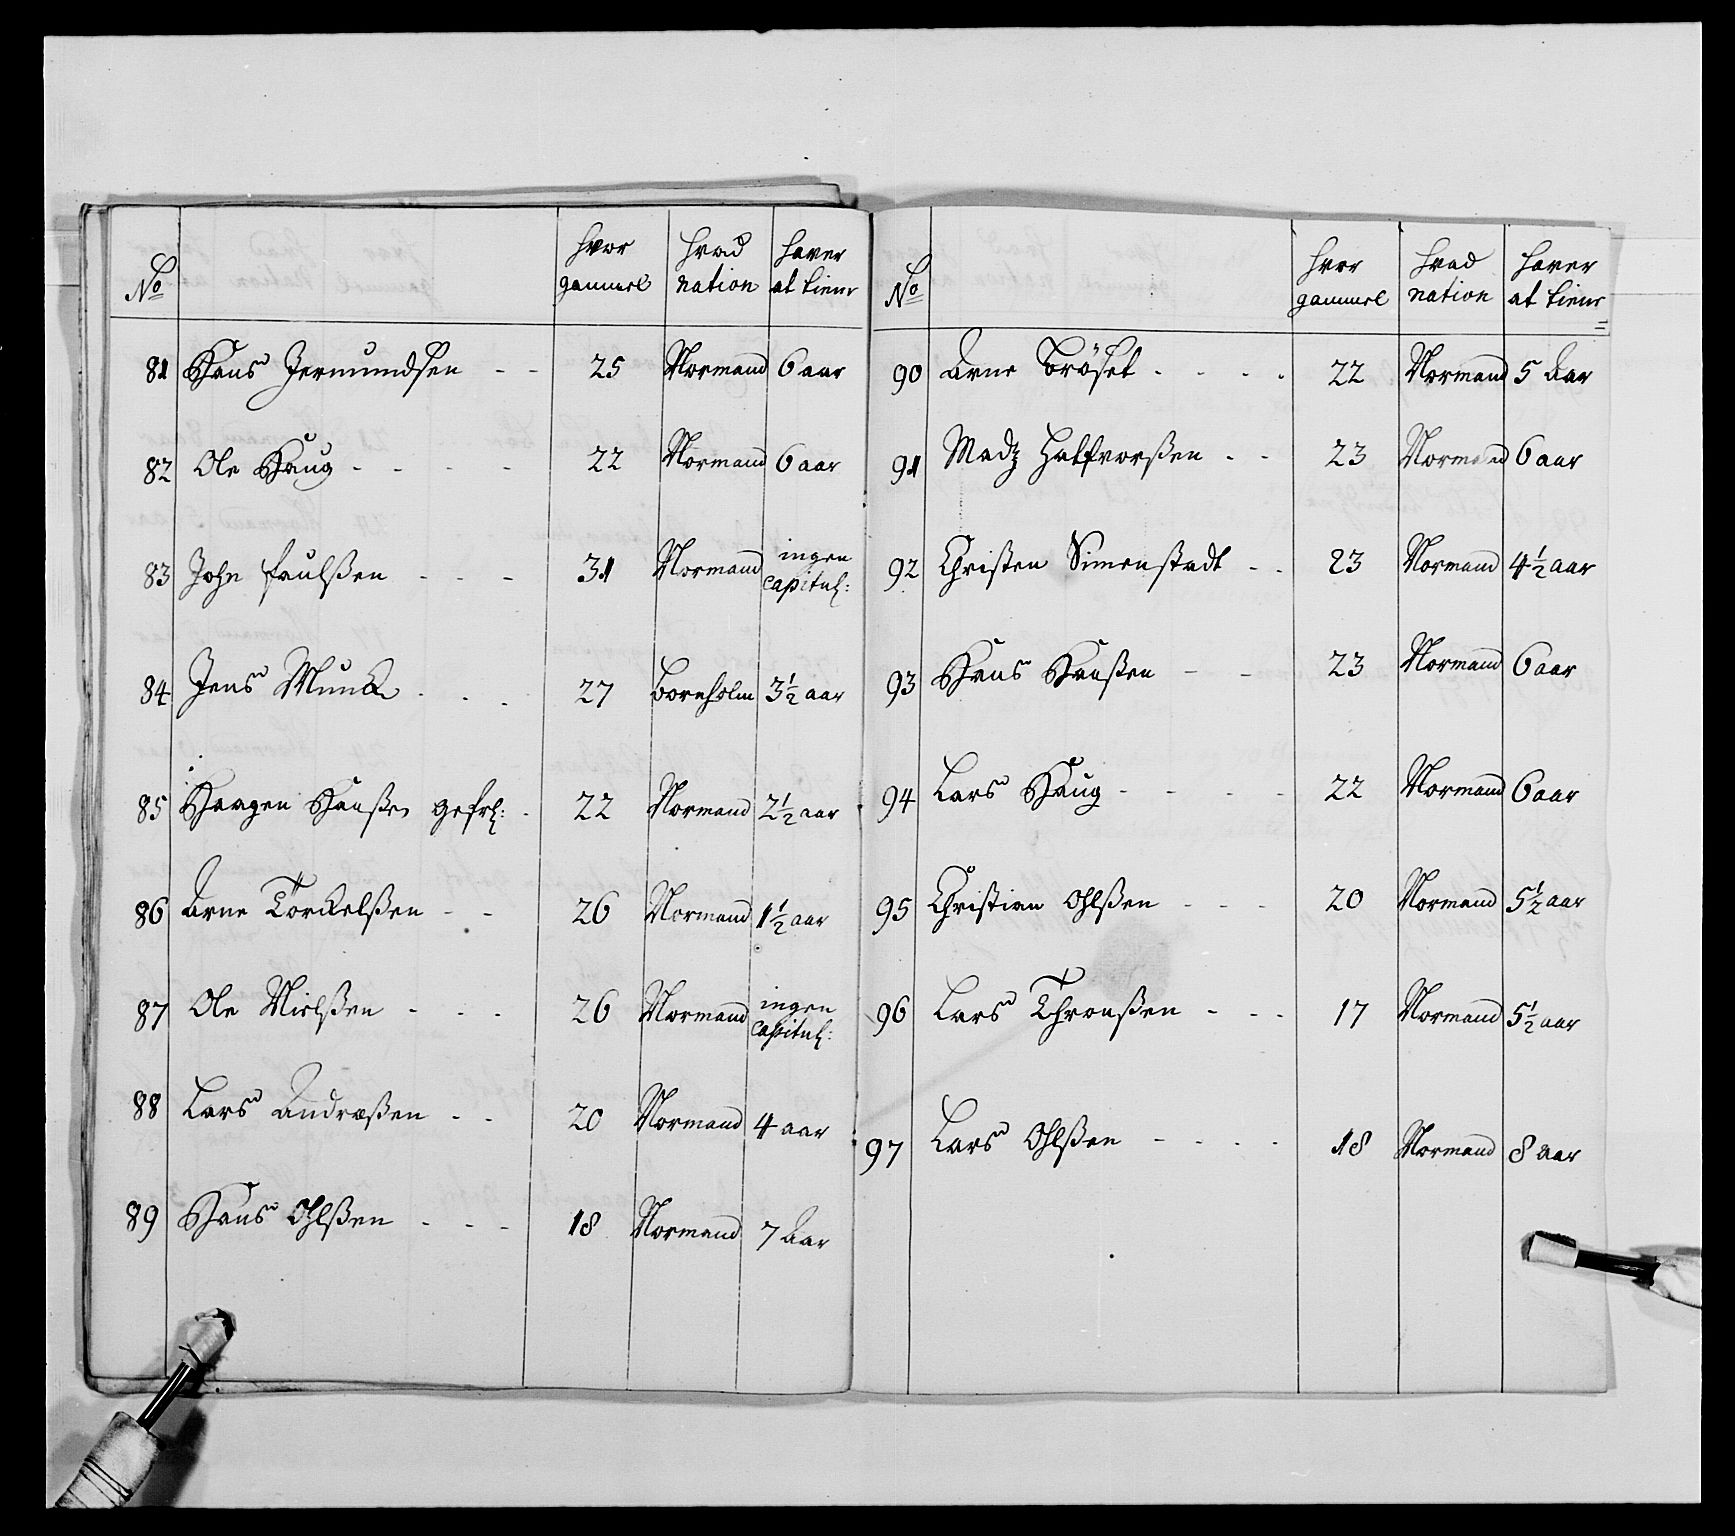 No hvor gammel hvad nation haver at tiene
81 Hans Jermundsen - - 25 Normand 6 aar
82 Ole Haug - - - - 22 Normand 6 aar
83 John Paulßen - - - 31 Normand ingen capitul:
84 Jens Munck - - - 27 Bornholm 3 1/2 aar
85 Haagen Hanßen gefrl: - 22 Normand 2 1/2 aar
86 Arne Torckelßen - - 26 Normand 1 1/2 aar
87 Ole Nielßen - - - 26 Normand ingen capitul:
88 Lars Andreßen - - 20 Normand 4 aar
89 Hans Ohlßen - - - 18 Normand 7 Aar
No hvor gammel hvad nation haver at tiene
90 Arne Bröset - - - - 22 Normand 5 Aar
91 Madz Halfvorßen - - 23 Normand 6 aar
92 Christen Simenstadt - - 23 Normand 4 1/2 aar
93 Hans Hanßen - - 23 Normand 6 aar
94 Lars Haug - - - - 22 Normand 6 aar
95 Christian Ohlßen - - - 20 Normand 5 1/2 aar
96 Lars Thronßen - - - 17 Normand 5 1/2 aar
97 Lars Ohlßen - - - - 18 Normand 8 aar